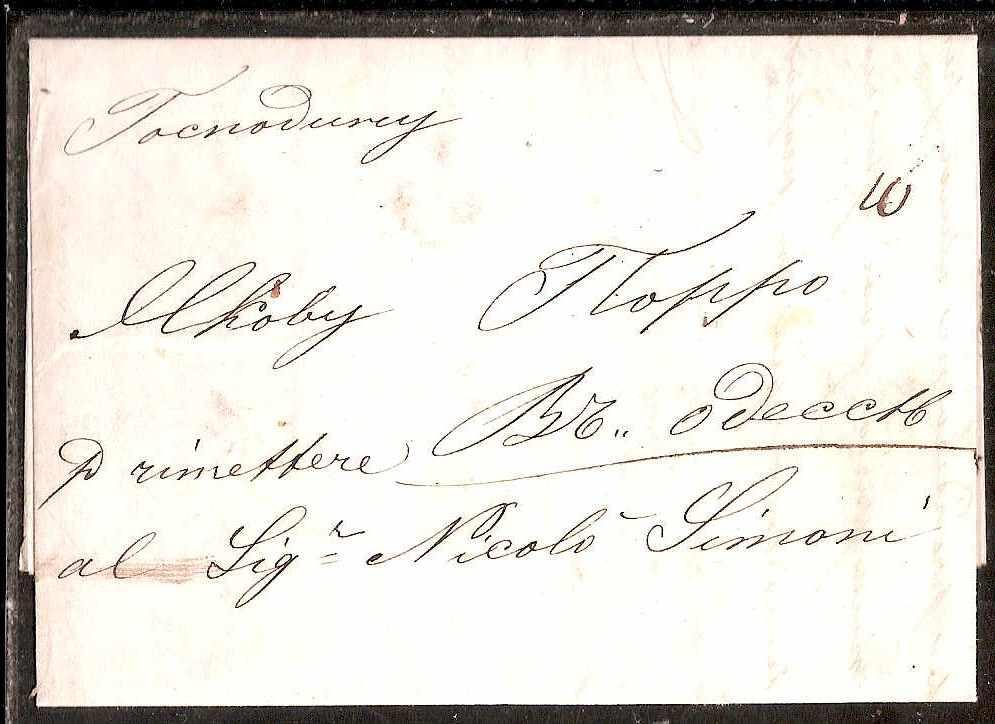 Господину
10
Якову Порро
Въ„ одессѣ
p rimettere
al Sig.r Nicolò Simoni